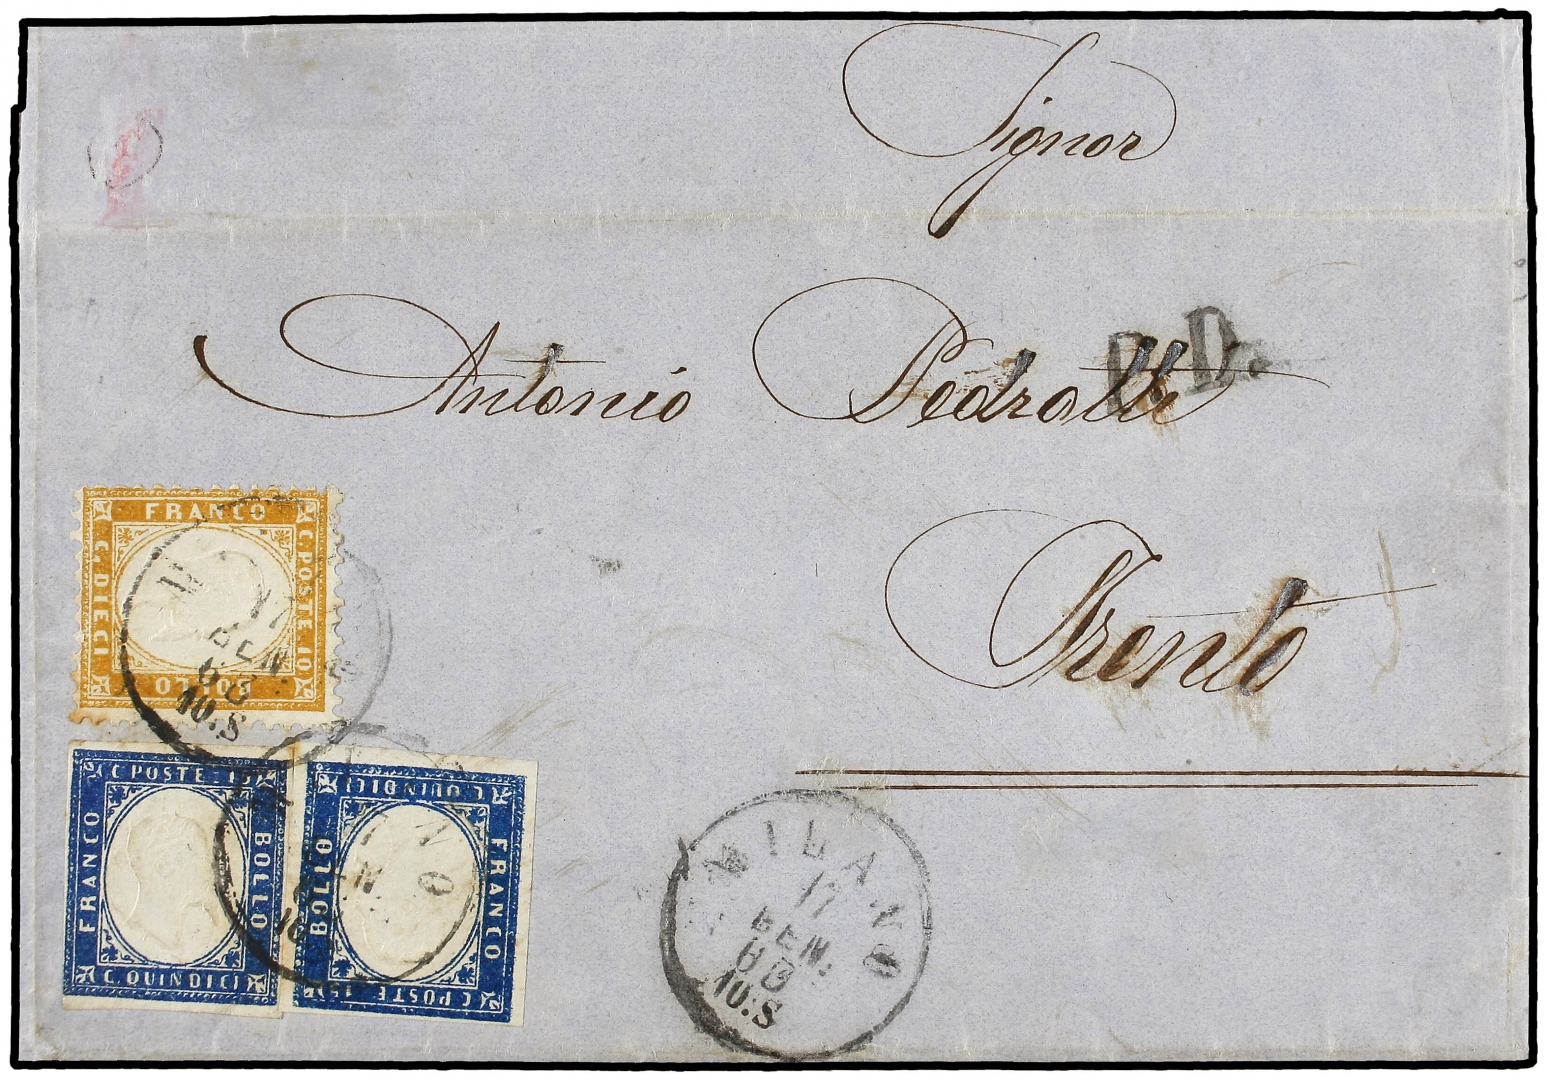 Signor
Antonio Pedrotti
P.D.
Trento
FRANCO
C. POSTE 10
BOLLO
C. DIECI
GEN.
63
10.S
C POSTE 15
BOLLO
C. QUINDICI
FRANCO
C. QUINDICI
FRANCO
C POSTE 15
BOLLO
MILANO
17
GEN.
63
10.S